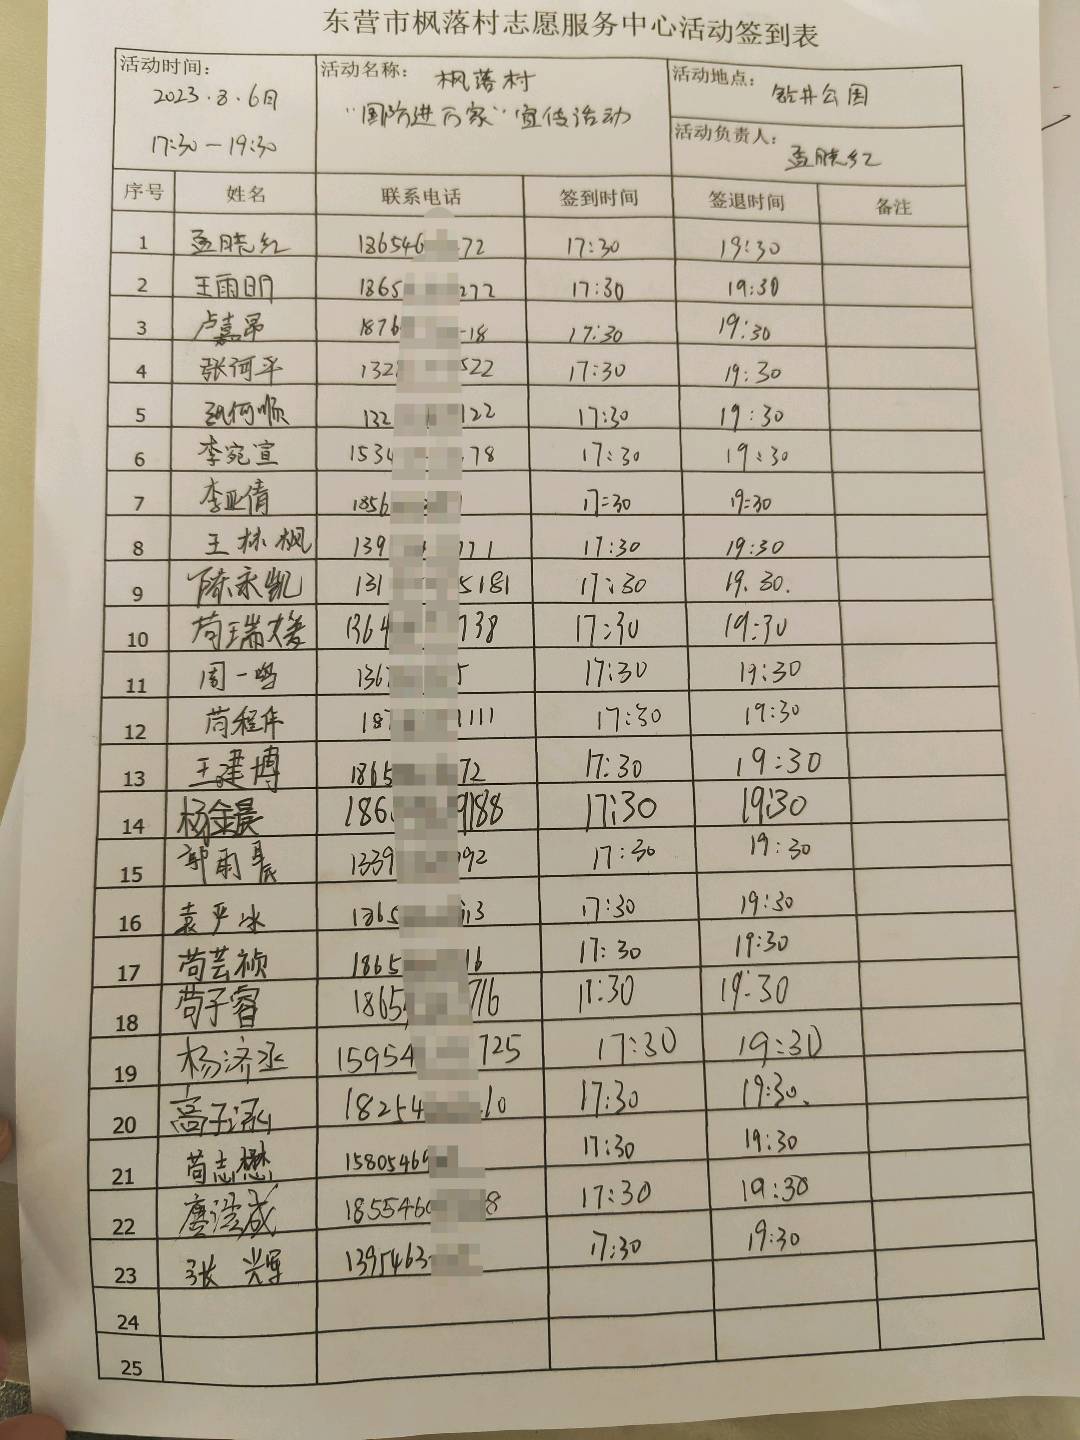 东营市枫落村志愿服务中心活动签到表
活动时间： 2023.8.6日 17:30—19:30
活动名称： 枫落村
“国防进万家”宣传活动
活动地点： 钻井公园
活动负责人： 孟晓红
序号 姓名 联系电话 签到时间 签退时间 备注
1 孟晓红 186546 72 17:30 19:30
2 王雨明 1865 272 17:30 19:30
3 卢嘉昂 1876 18 17:30 19:30
4 张何平 132 522 17:30 19:30
5 张何顺 132 122 17:30 19:30
6 李宛宣 1534 78 17:30 19:30
7 李亚倩 1856 17:30 19:30
8 王林枫 139 171 17:30 19:30
9 陈永凯 131 5181 17:30 19.30.
10 苟瑞媛 1364 738 17:30 19:30
11 周一鸣 136 5 17:30 19:30
12 苟程年 187 1111 17:30 19:30
13 王建博 1865 72 17:30 19:30
14 杨金晨 186 9188 17:30 19:30
15 郭雨晨 1339 992 17:30 19:30
16 袁尹冰 1865 13 17:30 19:30
17 苟芸祯 1865 16 17:30 19:30
18 苟子睿 1865 716 17:30 19:30
19 杨济丞 15954 725 17:30 19:30
20 高子涵 18254 10 17:30 19:30.
21 苟志懋 1580546 17:30 19:30
22 185546 8 17:30 19:30
23 张 辉 1395463 17:30 19:30
24
25